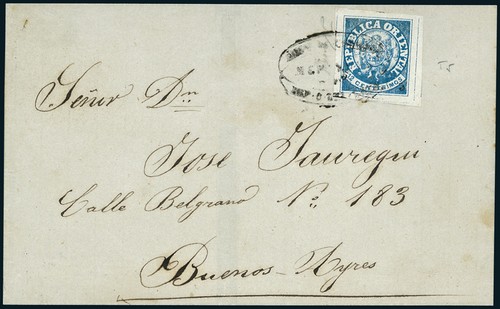 REPUBLICA ORIENTAL
CENTESIMOS
T5
Señor Dn
Jose Jauregui
Calle Belgrano No. 183
Buenos-Ayres